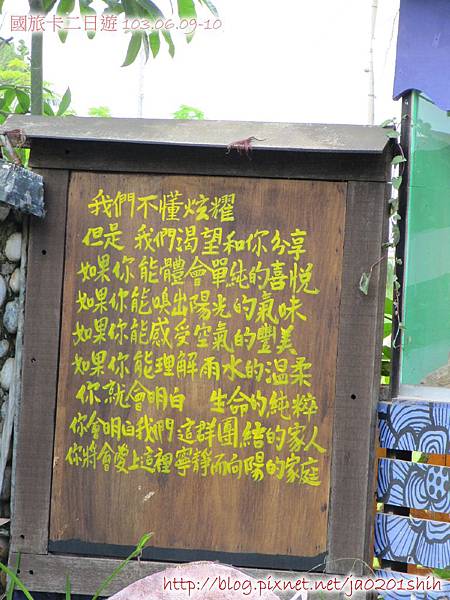 國旅卡二日遊 103.06.09-10
我們不懂炫耀
但是 我們渴望和你分享
如果你能體會單純的喜悅
如果你能嗅出陽光的氣味
如果你能感受空氣的豐美
如果你能理解雨水的温柔
你就會明白 生命的純粹
你會明白我們這群團結的家人
你將會愛上這裡寧靜而向陽的家庭
http://blog.pixnet.net/ja0201shih